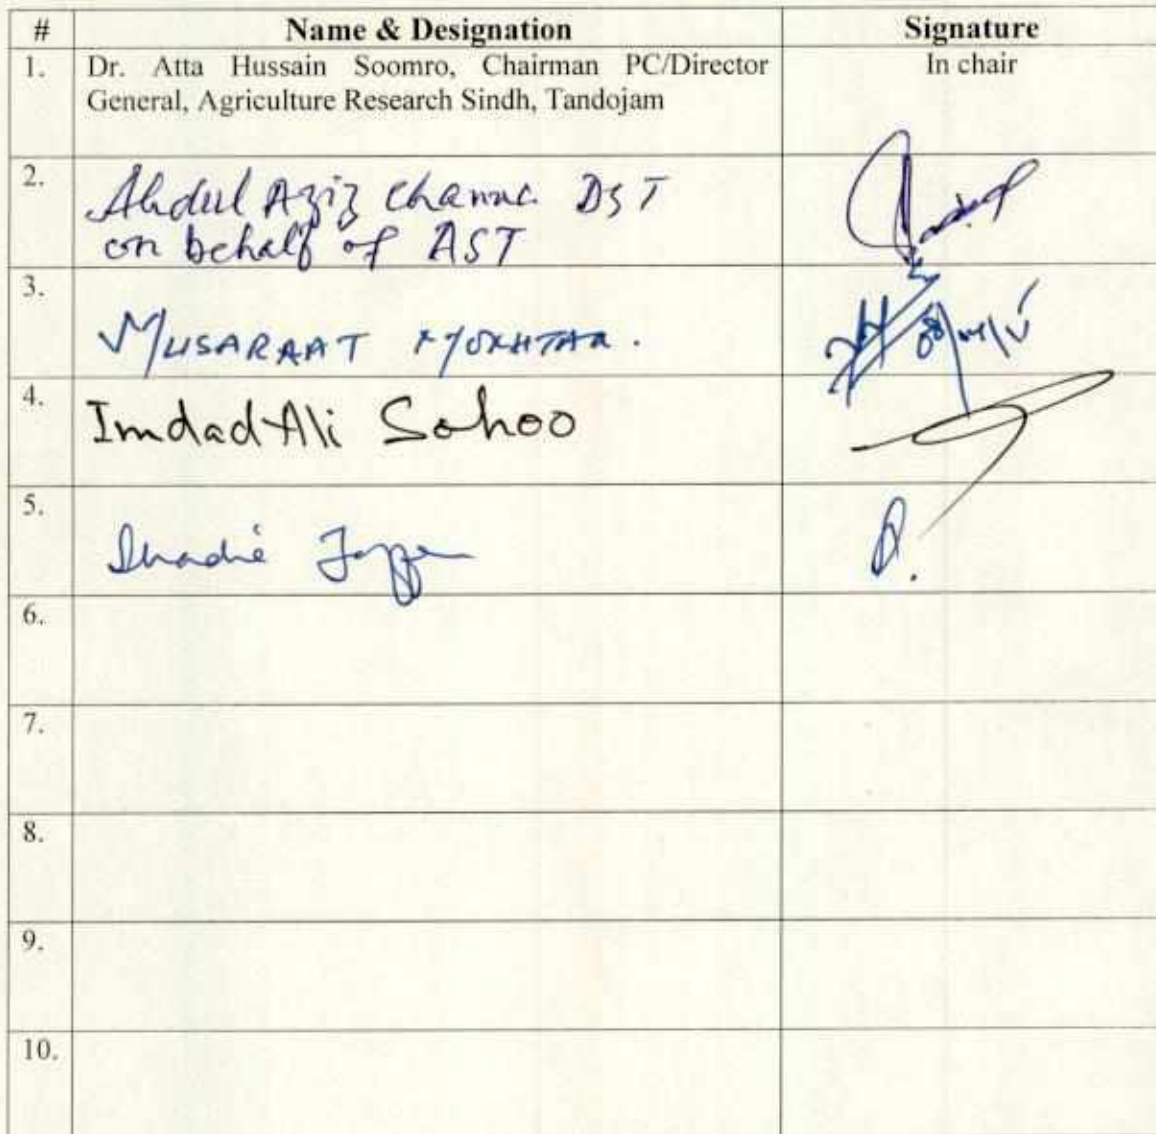 # Name & Designation Signature
1. Dr. Atta Hussain Soomro, Chairman PC/Director In chair
General, Agriculture Research Sindh, Tandojam
2. Abdul Aziz Channa DST
on behalf of AST
3. MUSARAAT MOKHTAR.
4. Imdad Ali Sohoo
5.
6.
7.
8.
9.
10.